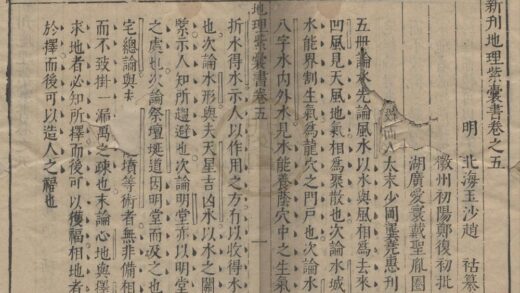 新刊地理紫囊書卷之五
明 北海玉沙趙 祜纂
徽州初陽鄭復初批
湖廣愛襄載聖胤圖
太末少岡
惠刊
五冊論水先論風水以水與風相為去來
凹風見天風地氣相為聚散也次論水城
水能界制生氣為龍穴之門戶也次論水
八字水內外水見水能養蔭穴中之生氣
地理紫囊書卷五
一
折水得水示人以作用之方有以收得水
也次論水形與夫天星吉凶水以水之關
禦示人知所趨避也次論明堂亦以明堂
之處也次論祭壇埏道因明堂而及之也
宅總論與
墳等術者無非備相
而不致掛一漏萬之疎也末論心地與擇
求地者必知所擇而後可以獲福相地者
於擇而後可以造人之福也